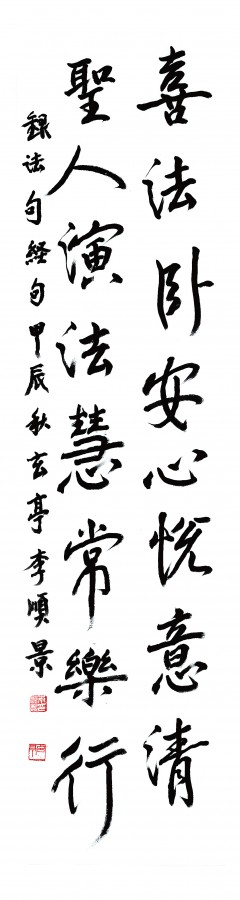 喜法卧安心悦意清
聖人演法慧常樂行
錄法句経句甲辰秋玄亭李順景